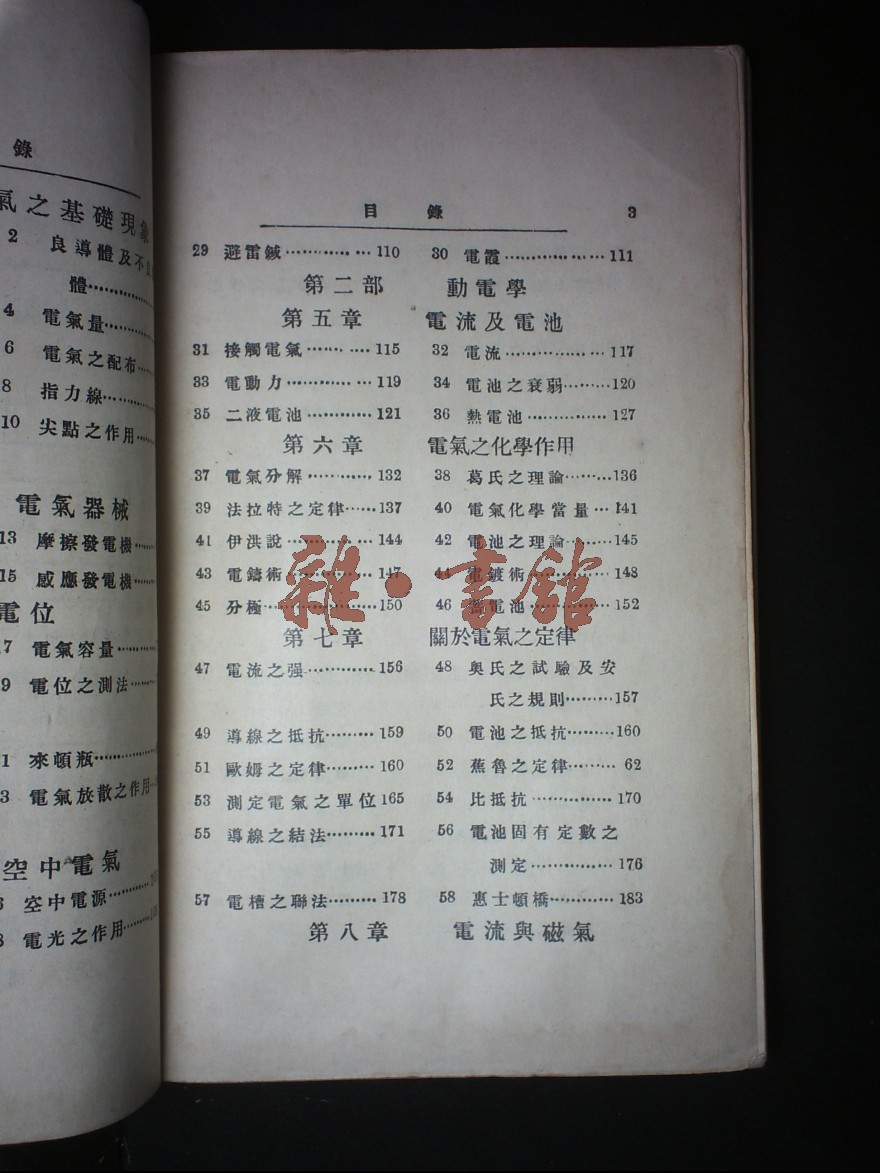 錄
氣之基礎現象
2 良導體及不良
體…………
4 電氣量………
6 電氣之配布…
8 指力線………
10 尖點之作用…
電氣器械
13 摩擦發電機…
15 感應發電機…
電位
17 電氣容量……
19 電位之測法…
1 來頓瓶………
3 電氣放散之作用…
空中電氣
空中電源………
8 電光之作用……
目 錄 3
29 避雷鍼…………110 30 電霞…………111
第二部 動電學
第五章 電流及電池
31 接觸電氣…………115 32 電流…………117
33 電動力…………119 34 電池之衰弱………120
35 二液電池…………121 36 熱電池…………127
第六章 電氣之化學作用
37 電氣分解…………132 38 葛氏之理論………136
39 法拉特之定律……137 40 電氣化學當量…141
41 伊洪說…………144 42 電池之理論………145
43 電鑄術…………147 44 電鍍術…………148
45 分極…………150 46 蓄電池…………152
第七章 關於電氣之定律
47 電流之强…………156 48 奥氏之試驗及安
氏之規則………157
49 導線之抵抗………159 50 電池之抵抗………160
51 歐姆之定律………160 52 蕉魯之定律……… 62
53 測定電氣之單位165 54 比抵抗…………170
55 導線之結法………171 56 電池固有定數之
測定…………176
57 電槽之聯法………178 58 惠士頓橋…………183
第八章 電流與磁氣
雜·書館